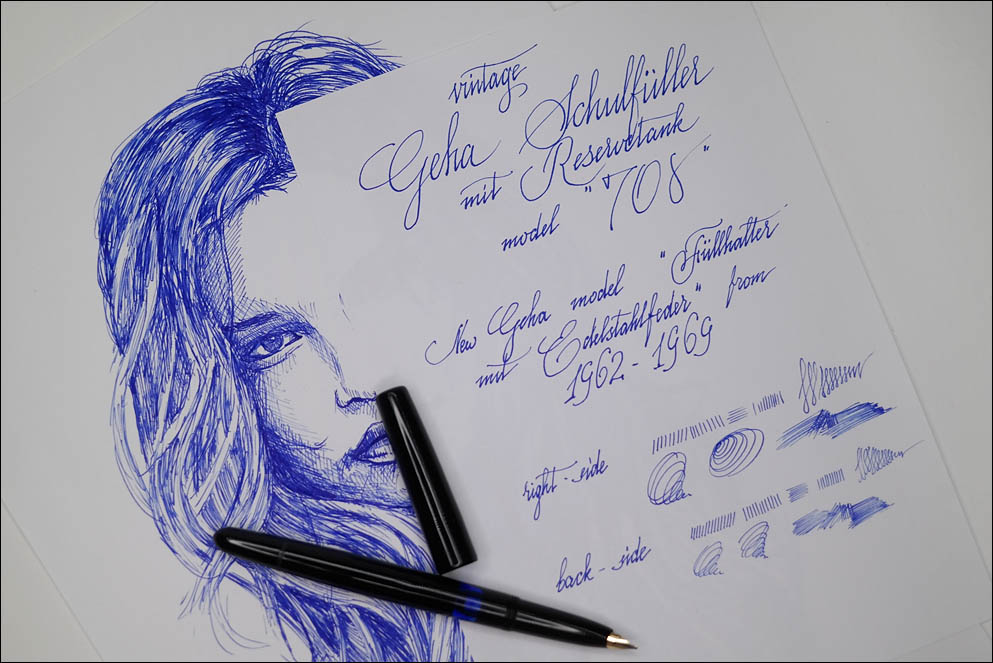 vintage
Geha Schulfüller
mit Reservetank
model "708"
New Geha model "Füllhalter
mit Edelstahlfeder" from
1962-1969
right-side
back-side